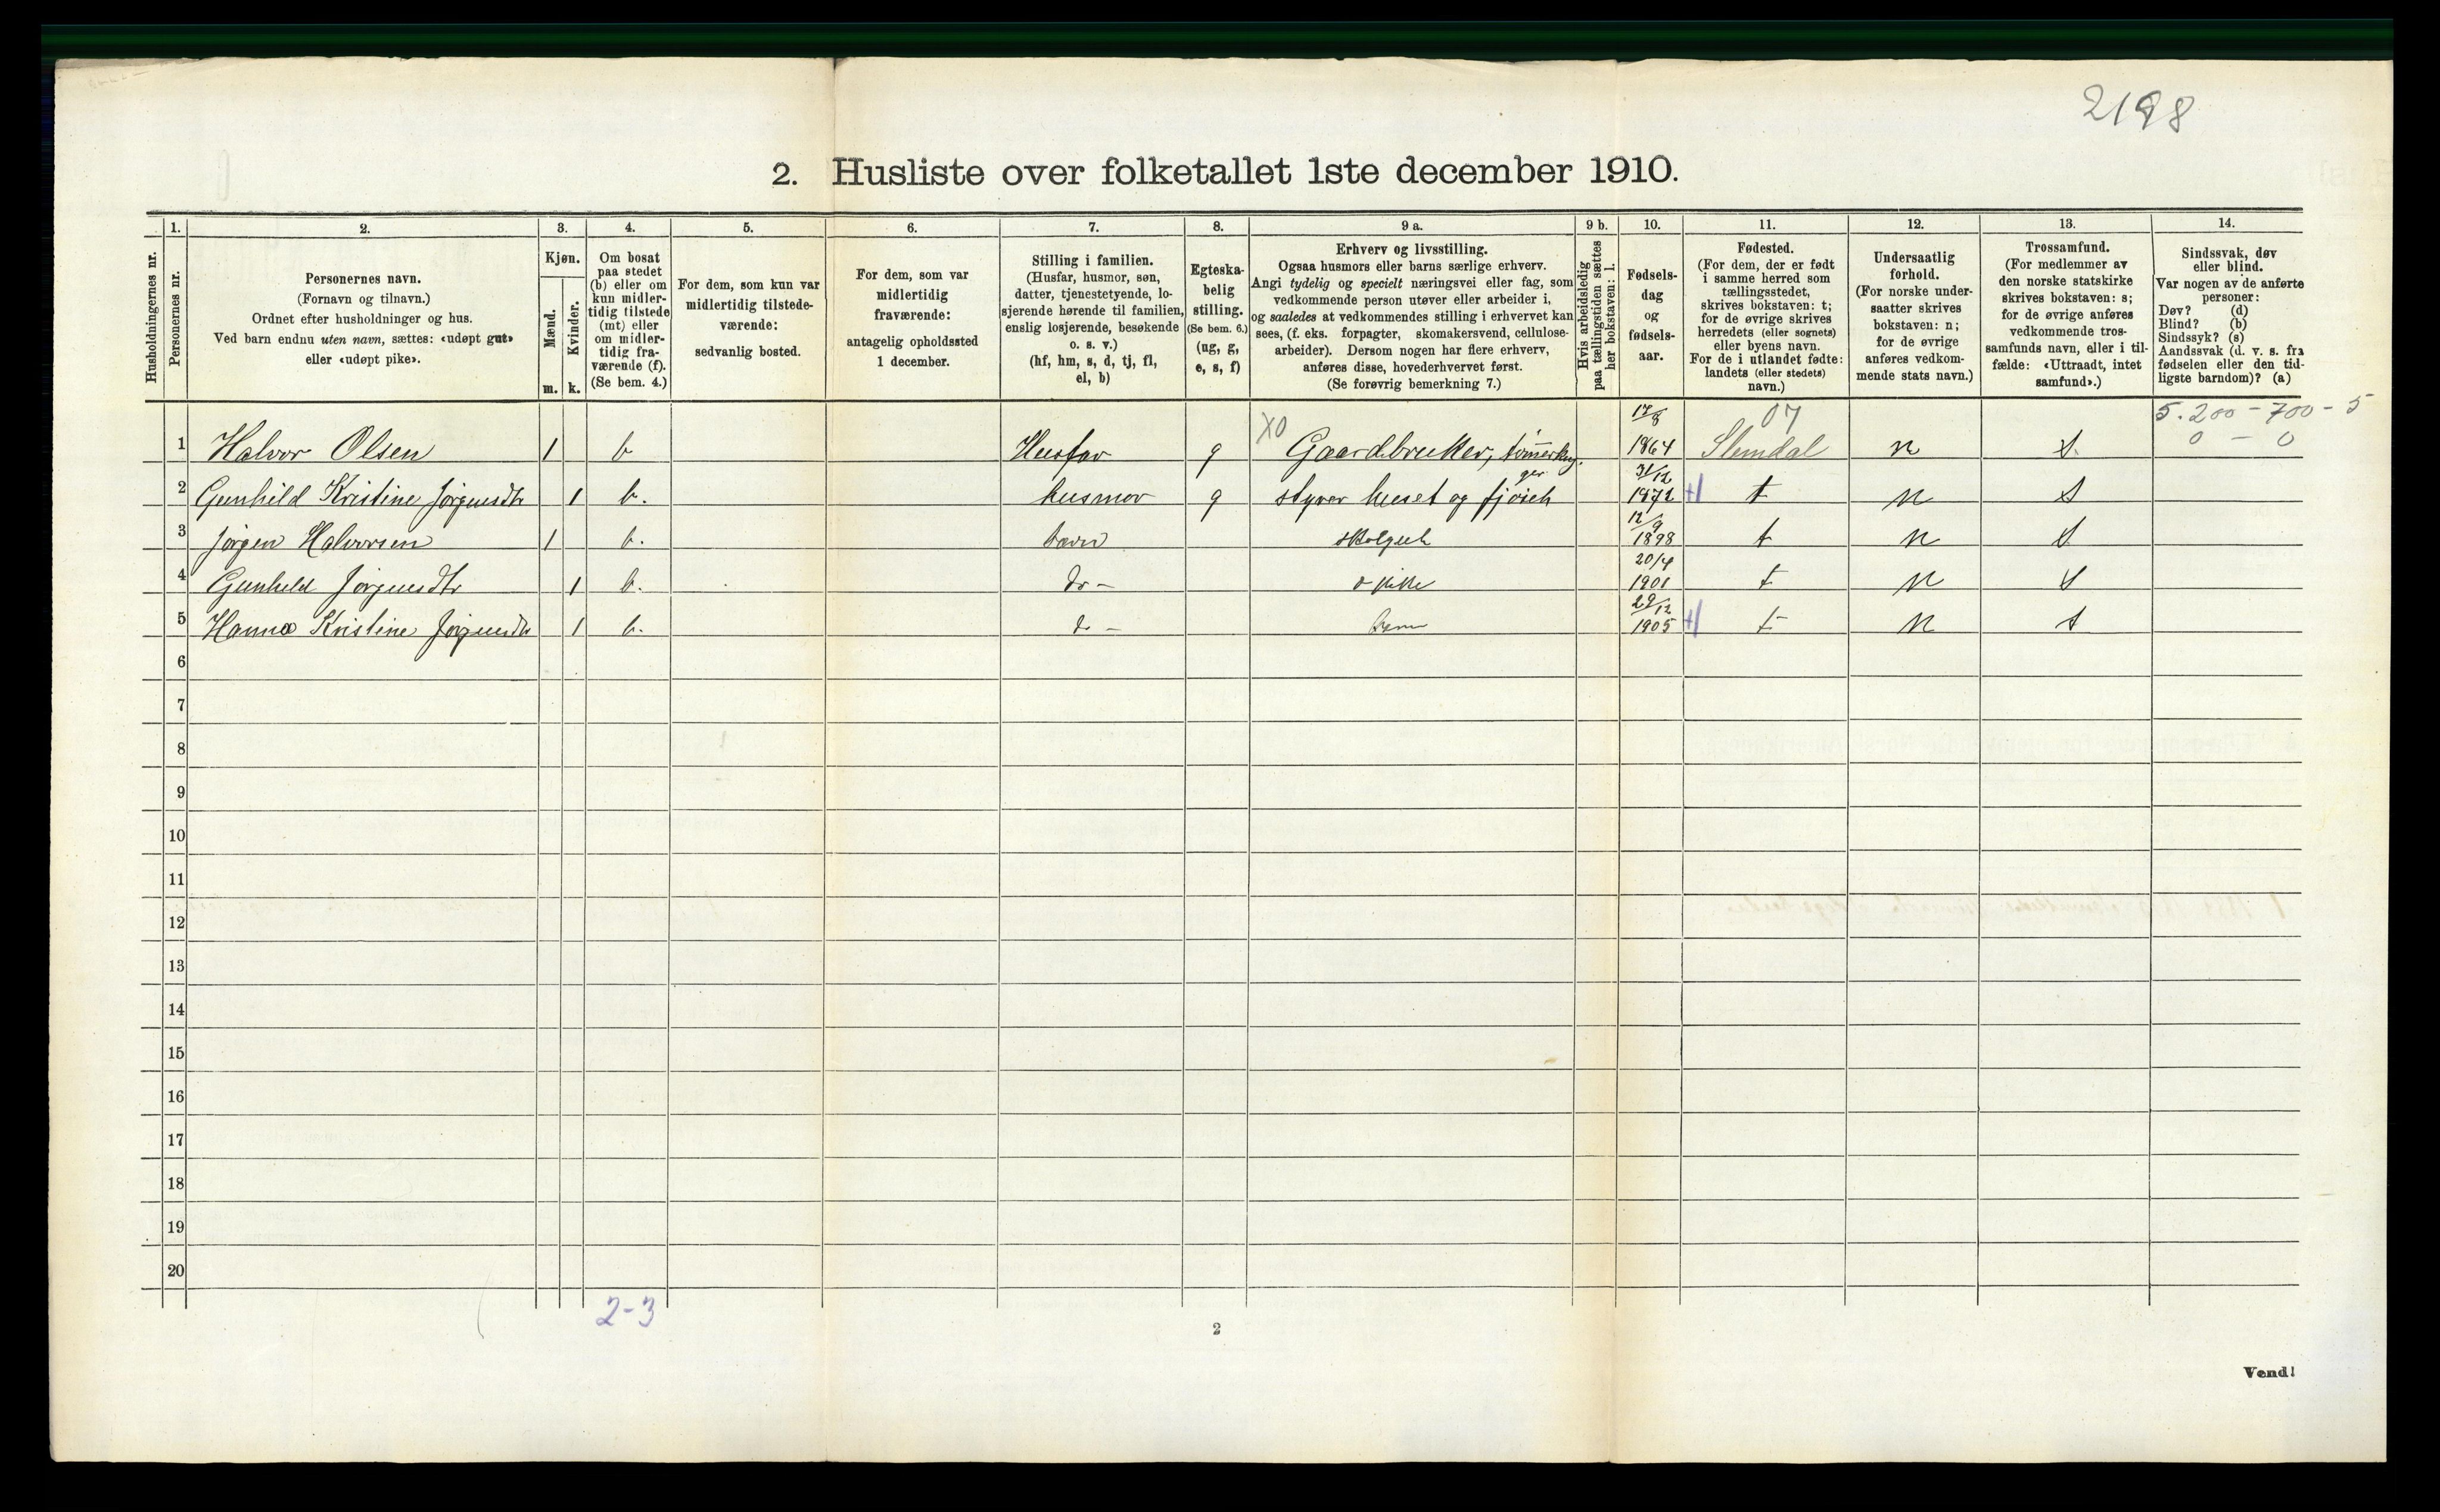 2198
2. Husliste over folketallet 1ste december 1910.
Husholdningernes nr.
1.
Personernes nr.
2.
Personernes navn.
(Fornavn og tilnavn.)
Ordnet efter husholdninger og hus.
Ved barn endnu uten navn, sættes: «udøpt gut»
eller «udøpt pike».
3.
Kjøn.
Mænd.
m.
Kvinder.
k.
4.
Om bosat
paa stedet
(b) eller om
kun midler-
tidig tilstede
(mt) eller
om midler-
tidig fra-
værende (f).
(Se bem. 4.)
5.
For dem, som kun var
midlertidig tilstede-
værende:
sedvanlig bosted.
6.
For dem, som var
midlertidig
fraværende:
antagelig opholdssted
1 december.
7.
Stilling i familien.
(Husfar, husmor, søn,
datter, tjenestetyende, lo-
sjerende hørende til familien,
enslig losjerende, besøkende
o. s. v.)
(hf, hm, s, d, tj, fl,
el, b)
8.
Egteska-
belig
stilling.
(Se bem. 6.)
(ug, g,
e, s, f)
9 a.
Erhverv og livsstilling.
Ogsaa husmors eller barns særlige erhverv.
Angi tydelig og specielt næringsvei eller fag, som
vedkommende person utøver eller arbeider i,
og saaledes at vedkommendes stilling i erhvervet kan
sees, (f. eks. forpagter, skomakersvend, cellulose-
arbeider). Dersom nogen har flere erhverv,
anføres disse, hovederhvervet først.
(Se forøvrig bemerkning 7.)
9 b.
Hvis arbeidsledig
paa tællingstiden sættes
her bokstaven: l.
10.
Fødsels-
dag
og
fødsels-
aar.
11.
Fødested.
(For dem, der er født
i samme herred som
tællingsstedet,
skrives bokstaven: t;
for de øvrige skrives
herredets (eller sognets)
eller byens navn.
For de i utlandet fødte:
landets (eller stedets)
navn.)
12.
Undersaatlig
forhold.
(For norske under-
saatter skrives
bokstaven: n;
for de øvrige
anføres vedkom-
mende stats navn.)
13.
Trossamfund.
(For medlemmer av
den norske statskirke
skrives bokstaven: s;
for de øvrige anføres
vedkommende tros-
samfunds navn, eller i til-
fælde: «Uttraadt, intet
samfund».)
14.
Sindssvak, døv
eller blind.
Var nogen av de anførte
personer:
Døv? (d)
Blind? (b)
Sindssyk? (s)
Aandssvak (d. v. s. fra
fødselen eller den tid-
ligste barndom)? (a)
07 5.200 - 700 - 5
0 - 0
1 Halvor Olsen 1 b Husfar g X0 Gaardbruker, tømmerhug- 1864 Slemdal n s.
ger
2 Gunhild Kristine Jørgensdtr 1 b. husmor g styrer huset og fjøset 31/12 1872 t n s
3 Jørgen Halvorsen 1 b. barn skolegut 12/9 1898 t n s
4 Gunhild Jørgensdtr 1 b. do - 20/4 1901 t n s
5 Hanna Kristine Jørgensdtr 1 b. do - barn 29/12 1905 t n s
6
7
8
9
10
11
12
13
14
15
16
17
18
19
20
2-3
2
Vend!